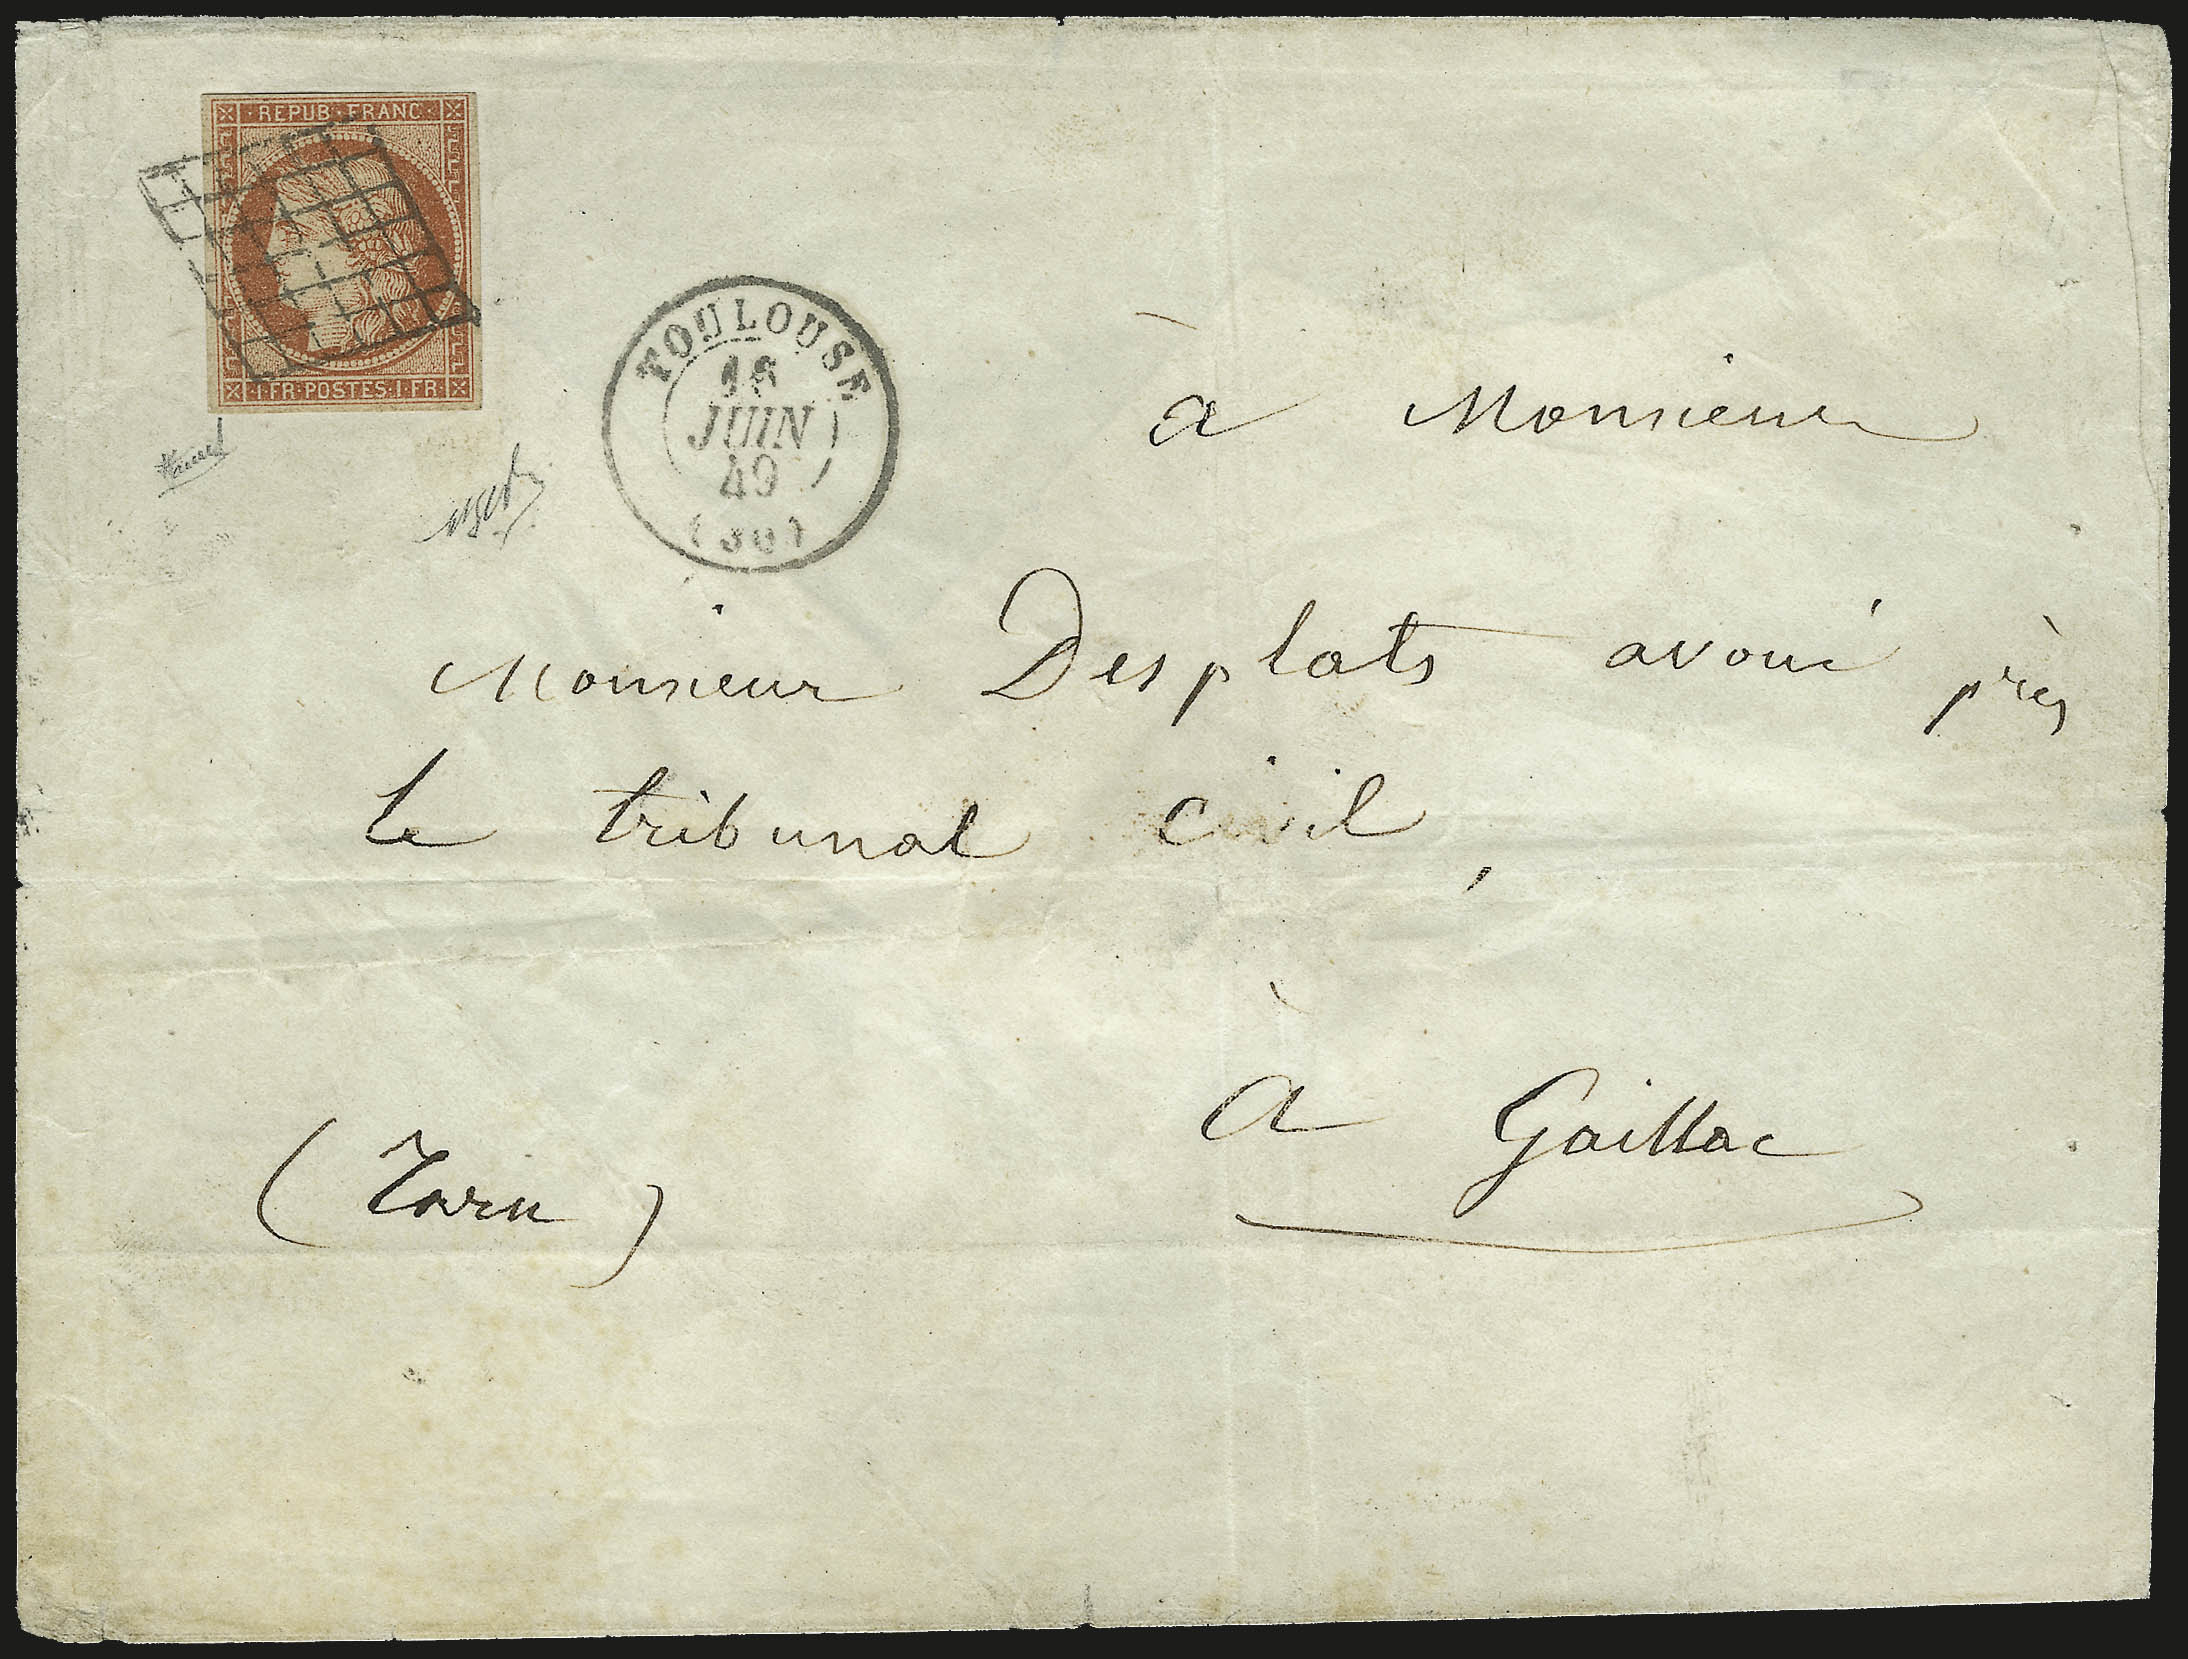 REPUB·FRANC
1·FR·POSTES·1·FR
TOULOUSE
JUIN
49
à Monsieur
Monsieur Desplats avoué près
le tribunal civil,
à Gaillac
(Tarn)